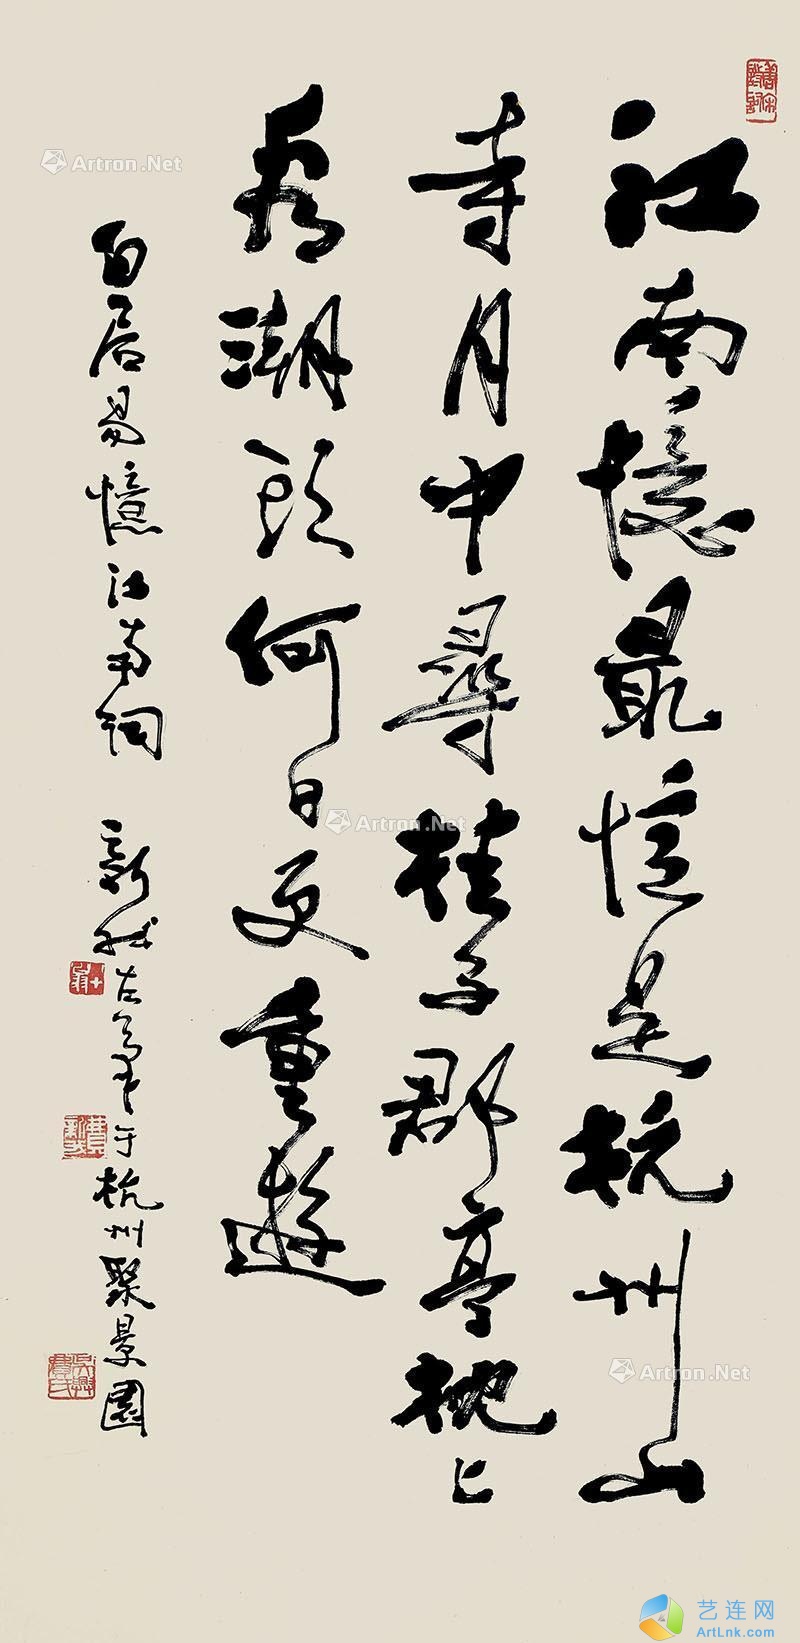 江南憶最憶是杭州山
寺月中尋桂子郡亭枕上
看潮頭何日更重遊
白居易憶江南詞 新我左筆于杭州聚景園
Artron.Net
Artron.Net
Artron.Net
艺连网
ArtLnk.com